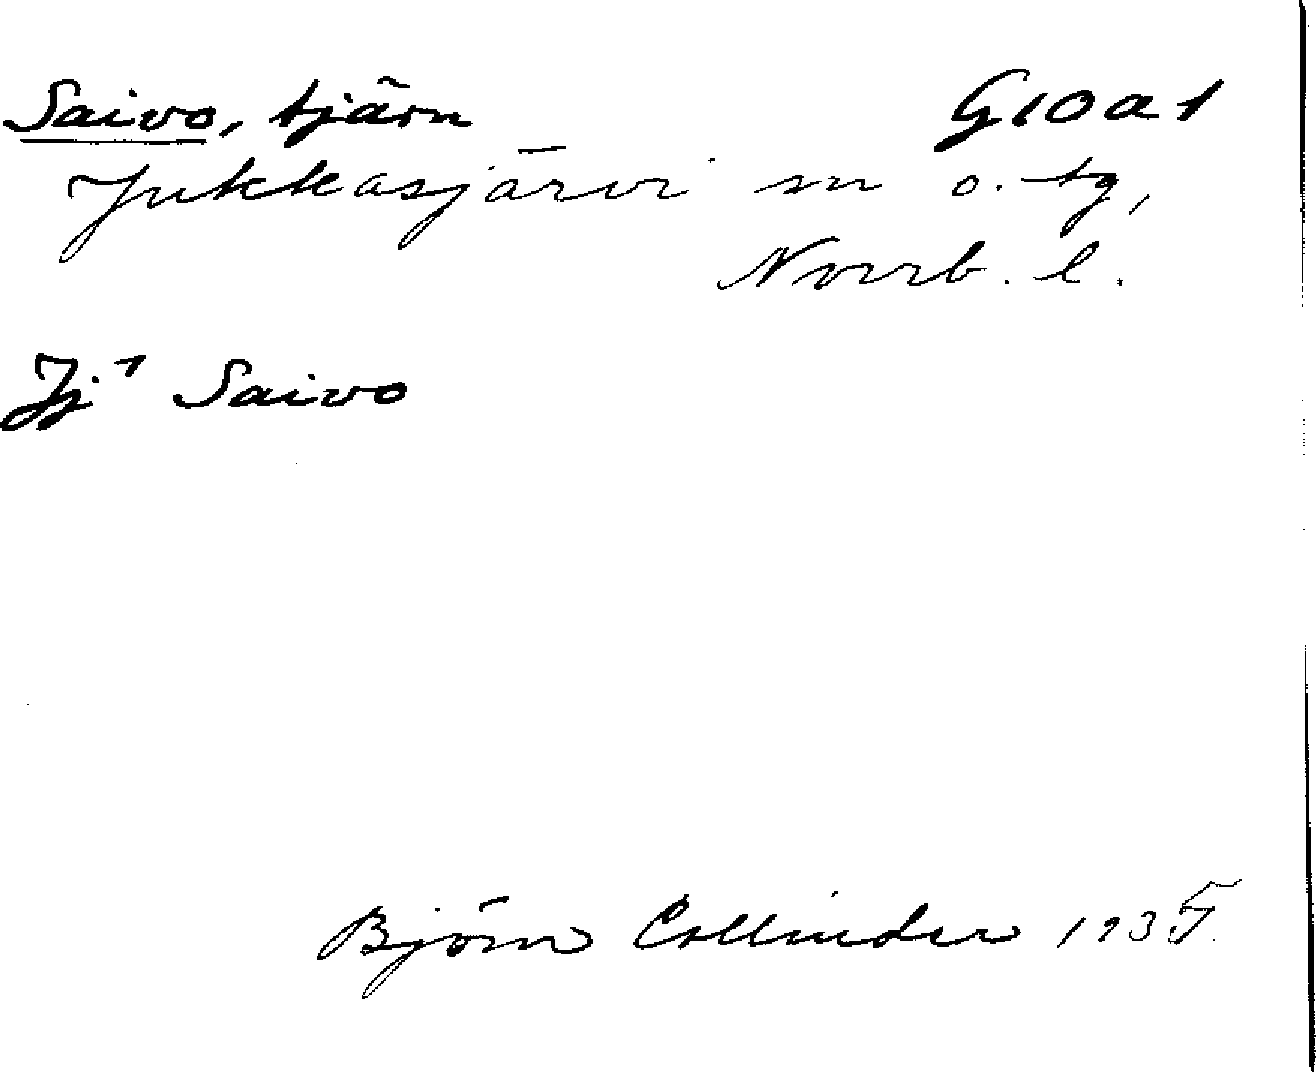 Saivo, tjärn G10a1
Jukkasjärvi sn o. tg,
Norrb. l.
Jj1 Saivo
Björn Collinder 1935.